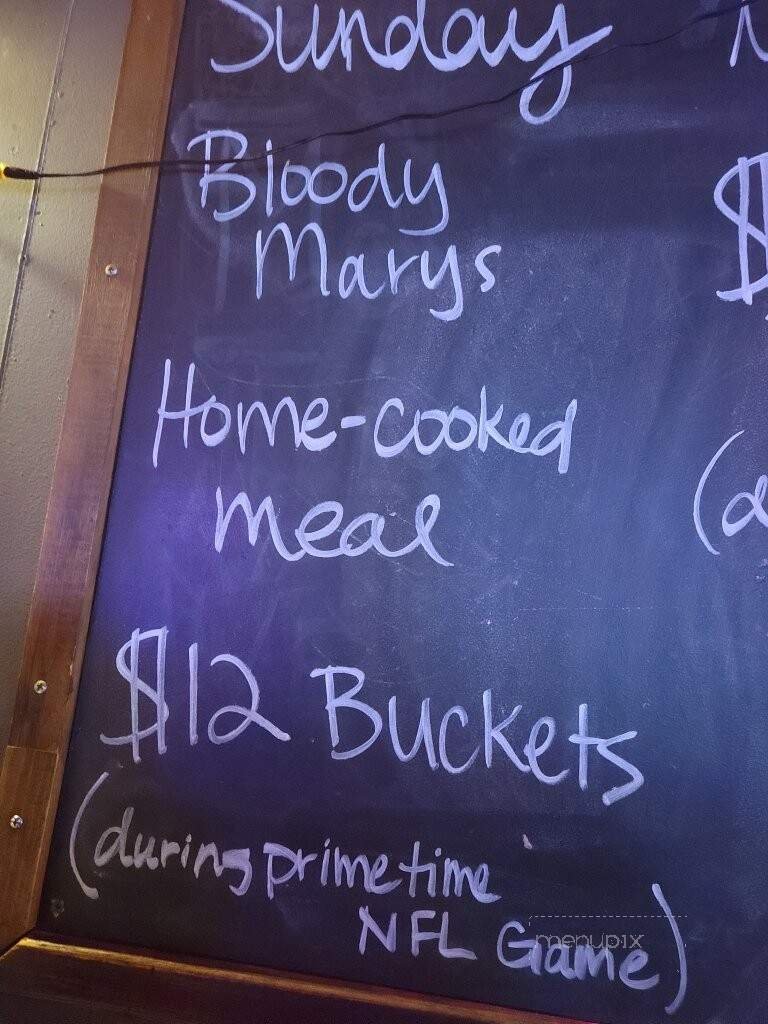 Sunday
Bloody
Marys
Home-cooked
meal
$12 Buckets
(during primetime
NFL Game)
menupix